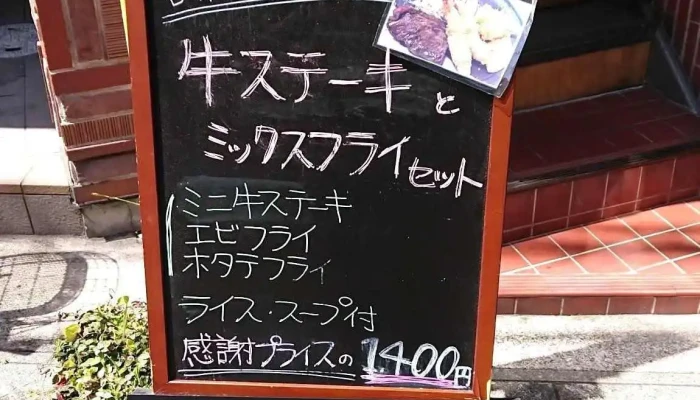 牛ステーキと
ミックスフライセット
ミニ牛ステーキ
エビフライ
ホタテフライ
ライス・スープ付
感謝プライスの1400円